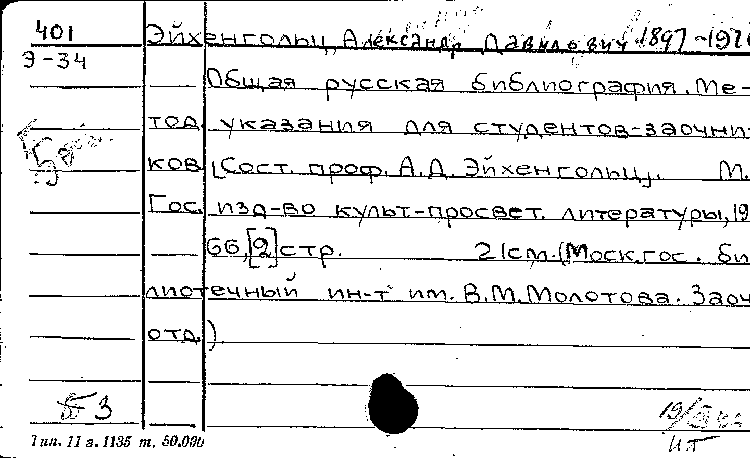 401
Э-34
Эйхенгольц, Александр Давидович 1897-
Общая русская библиография. Ме-
тод. указания для студентов-заочни-
ков. [Сост. проф. А.Д. Эйхенгольц]. М.
Гос. изд-во культ-просвет. литературы, 19
66, [2] стр. 21см. (Моск. гос. би
лиотечный ин-т им. В.М. Молотова. Заоч
отд.)
3
Тип. 11 з. 1135 т. 50.000